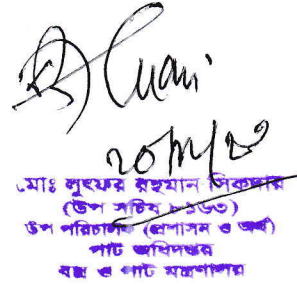 মোঃ লুৎফর রহমান সিকদার
(উপ সচিব ৮১৬৩)
উপ পরিচালক (প্রশাসন ও অর্থ)
পাট অধিদপ্তর
বস্ত্র ও পাট মন্ত্রণালয়